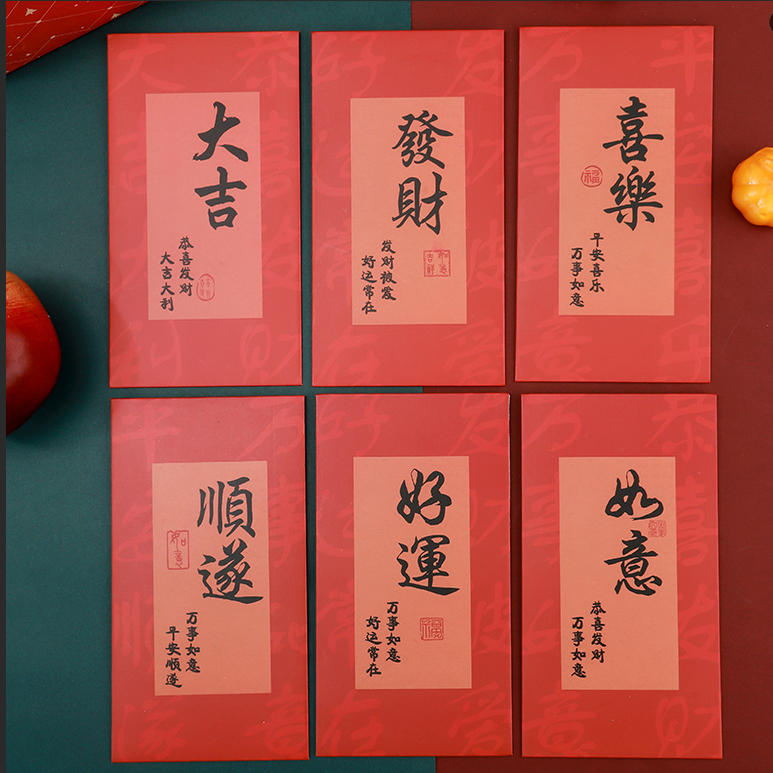 大吉
恭喜发财
大吉大利
發財
发财被爱
好运常在
吉祥
如意
喜樂
福
平安喜乐
万事如意
順遂
如意
万事如意
平安顺遂
好運
福
万事如意
好运常在
如意
恭喜发财
万事如意